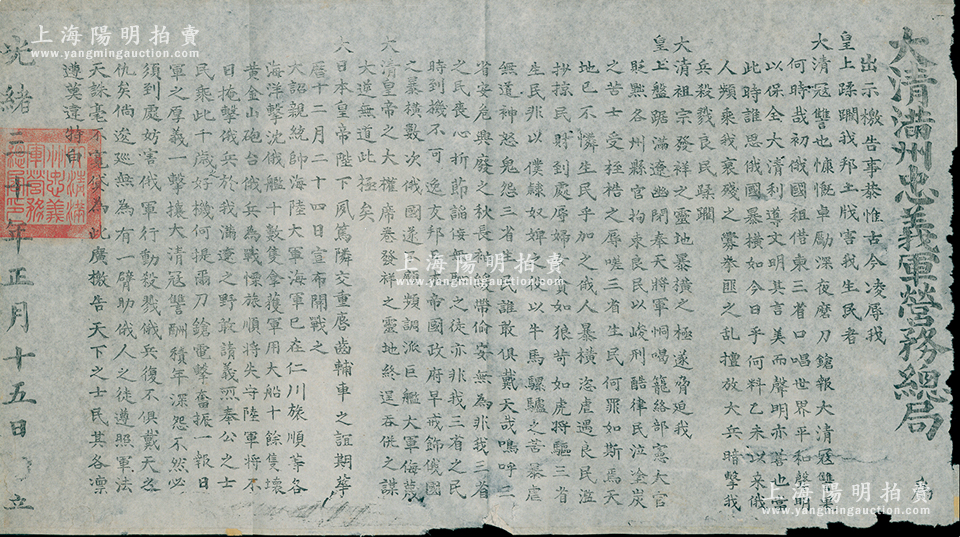 大清滿州忠義軍營務總局
為
出示檄告事恭惟古今凌辱我
皇上蹂躪我邦土戕害我生民者
大清寇讐也慷慨卓勵深夜磨刀鎗報大清寇讐果
何時哉初俄國租借東三省口唱世界平和聲明
以保全大清利導文明其言美而聲明亦善也當
此時誰思俄國暴橫如今日乎何料乙未以來俄
人頻乘我衰殘之釁拳匪之乱擅放大兵暗擊我
兵殺戮我良民蹂躪
大清祖宗發祥之靈地暴橫之極遂脅迫我
皇上盤踞滿遼幽閉奉天將軍恫喝籠絡部憲大官
貶黜各州縣官拘束良民以峻刑酷律民泣塗炭
之苦士受桎梏之辱嗟三省生民何罪如斯焉天
地已不憐生民乎加之俄人暴橫恣虐遇良民濫
抄掠民財到處辱婦貪如狼苛如虎將驅三省
生民非以僕隸奴婢之以牛馬騾驢之苦暴虐
無道神怒鬼怨三省生民誰敢俱戴天哉嗚呼二
省安危興廢之秋長袖緩帶偷安無為非我三省
之民喪心折節諂侫無恥之徒亦非我三省之民
時到機不可逸友邦日本帝國政府早戒飭俄國
之暴橫數次俄國遂不顧頻調派巨艦大軍侮蔑
大清皇帝之大權席卷發祥之靈地終逞吞併之謀
大逆無道此極矣
大日本皇帝陛下夙篤隣交重唇齒輔車之誼期華
曆十二月二十四日宣布開戰之
大詔親統帥海陸大軍海軍已在仁川旅順等各
海洋擊沈俄艦十數隻拿獲軍用大船十餘隻壞
黃金山砲台俄兵為戰慄旅順將失守陸軍將不
日掩擊俄兵於我滿遼之野敢請義烈奉公之士
民乘此千歲之好機何提爾刀鎗電擊奮振一報日
軍之厚義一擊攘大清寇讐酬積年深怨不然必
須到處妨害俄軍行動殺戮俄兵復不俱戴天之
仇矣倘逡巡無為有一臂助俄人之徒遵照軍法
天誅毫不寬貸為此廣檄告天下之士民其各凛
遵莫違特白
光緒三十年正月十五日立
上海陽明拍賣
www.yangmingauction.com
上海陽明拍賣
www.yangmingauction.com
上海陽明拍賣
www.yangmingauction.com
上海陽明拍賣
www.yangmingauction.com
上海陽明拍賣
www.yangmingauction.com